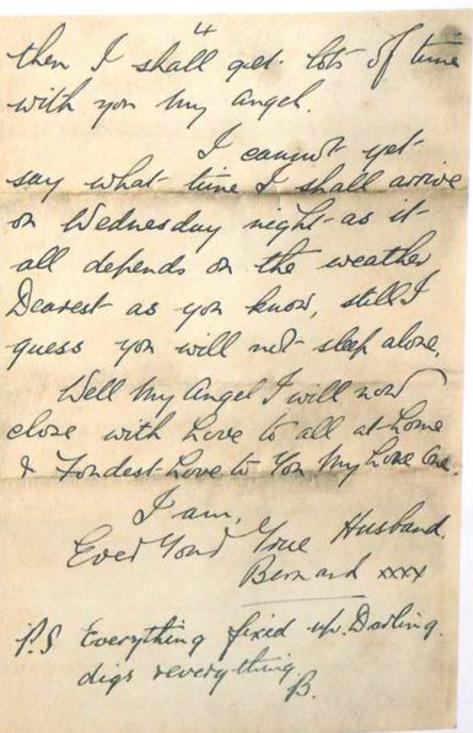 4
then I shall get lots of time
with you my angel.
I cannot yet
say what time I shall arrive
on Wednesday night as it
all depends on the weather
Dearest as you know, still I
guess you will not sleep alone,
Well my Angel I will now
close with Love to all at home
& Fondest Love to You My Love One.
I am,
Ever Your True Husband.
Bernard xxxx
P.S Everything fixed up. Darling.
digs & everything.
B.